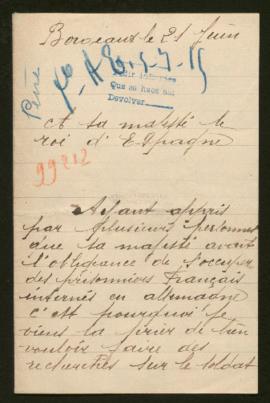 Bordeaux le 21 Juin
Pedir informes
Que se haga así
Devolver
a sa majesté le
roi d'Espagne
99212
Ayant appris
par plusieurs personnes
que sa majesté avait
l'obligeance de s'occuper
des prisonniers Français
internés en allemagne
c'est pourquoi je
viens la prier de bien
vouloir faire des
recherches sur le soldat